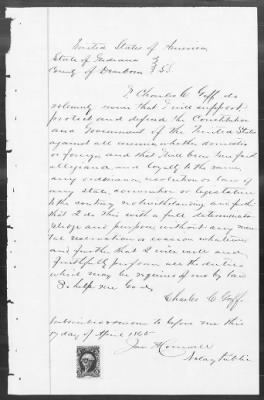 United States of America
State of Indiana }
County of Dearborn } S.S.
I Charles C Goff do
solemnly swear that I will support
protect and defend the Constitution
and Government of the United States
against all enemies whether domestic
or foreign and that I will bear true faith
allegiance and Loyalty to the same
any ordinance resolution or law of
any state convention or legislature
to the contrary notwithstanding and further
that I do this with a full determination
pledge and purpose without any men
tal reservation or evasion whatsoever
and further that I will well and
faithfully perform all the duties
which may be required of me by law
So help me God
Charles C Goff.
Subscribed & sworn to before me this
day of April 1865
Notary Public